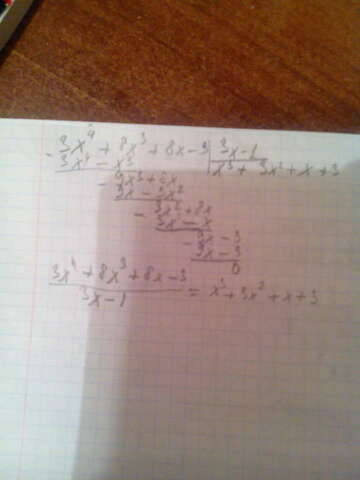 - 3x⁴ + 8x³ + 8x - 3 | 3x - 1
3x⁴ - x³ | x³ + 3x² + x + 3
- 9x³ + 8x
9x - 3x²
- 3x² + 8x
3x² - x
- 9x - 3
9x - 3
0
3x⁴ + 8x³ + 8x - 3
3x - 1
= x³ + 3x² + x + 3